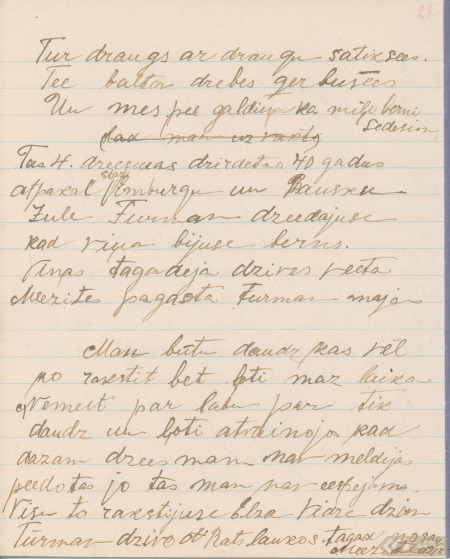 23.
Tur draugs ar draugu satiksees.
Tee baltas drebes gerbusees
Un mes pee galdiņa ka miļi berni
sedesim.
kad man uzrakstg
Tas 4. dzeesmas dzirdetas 40 gadus
atpakaļ starp Jumburgu un Bausku
Jule Furman dzeedajuse
kad viņa bijuse berns.
Viņas tagadeja dzives veeta
Meezites pagasta Furman majas
Man butu daudz kas vēl
ko rakstit bet ļoti maz laika
Nemeet par labu par tik
daudz un ļoti atvainojos kad
dazam dzeesmam nav meldijas
peedotas jo tas man nav eespejams
Visu to rakstijuse Elza Vidre dzim
Furman dzivo Ratslaukos tagad no sau
Meez